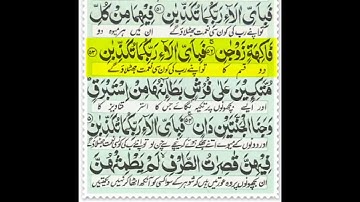 فَبِاَيِّ اٰلَآءِ رَبِّكُمَا تُكَذِّبٰنِ ۝۵۱ فِيْهِمَا مِنْ كُلِّ
تو اپنے رب کی کون سی نعمت جھٹلاؤ گے ان میں ہر میوہ دو
فَاكِهَةٍ زَوْجٰنِ ۝۵۲ فَبِاَيِّ اٰلَآءِ رَبِّكُمَا تُكَذِّبٰنِ ۝۵۳
دو قسم کا تو اپنے رب کی کون سی نعمت جھٹلاؤ گے
مُتَّكِـِٕيْنَ عَلٰى فُرُشٍۭ بَطَآىِٕنُهَا مِنْ اِسْتَبْرَقٍ
اور ایسے بچھونوں پر تکیہ لگائے جن کا استر قناویز کا
وَجَنَا الْجَنَّتَيْنِ دَانٍ ۝۵۴ فَبِاَيِّ اٰلَآءِ رَبِّكُمَا تُكَذِّبٰنِ
اور دونوں کے میوے اتنے جھکے ہوئے کہ نیچے سے چن لو تو اپنے رب کی کون سی نعمت جھٹلاؤ گے
فِيْهِنَّ قٰصِرٰتُ الطَّرْفِ لَمْ يَطْمِثْهُنَّ
ان بچھونوں پر وہ عورتیں ہیں کہ شوہر کے سوا کسی کو آنکھ اٹھا کر نہیں دیکھتیں